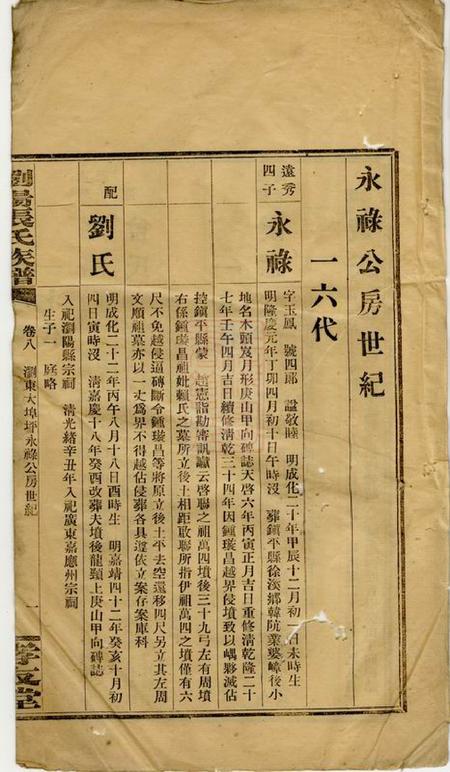 永祿公房世紀
一六代
遠秀四子
永祿
字玉鳳 號四郎 諡敬睦 明成化二十年甲辰十二月初一日未時生
明隆慶元年丁卯四月初十日午時沒 葬鎮平縣徐溪鄉韓坑葉婆嶂後小
地名木頭岌月形庚山甲向碑誌天啓六年丙寅正月吉日重修清乾隆二十
七年壬午四月吉日續修清乾三十四年因鍾璇昌越界侵墳致以嵎夥滅佔
控鎮平縣蒙 趙憲詣勘審訊讞云啓聯之祖萬四墳後三十九弓左有周墳
右係鍾璇昌祖妣賴氏之墓所立後土相距畝聯所指伊祖萬四之墳僅有六
尺不免越侵逼磚斷令鍾璇昌等將原立後土平去空還移四尺另立其左周
文順祖墓亦以一丈爲界不得越佔侵葬各具遵依立案存案庫科
配
劉氏
明成化二十二年丙午八月十八日酉時生 明嘉靖四十二年癸亥十月初
四日寅時沒 清嘉慶十八年癸酉改葬夫墳後龍頸上庚山甲向碑誌
入祀瀏陽縣宗祠 清光緒辛丑年入祀廣東嘉應州宗祠
生子一 庭略
瀏陽張氏族譜
卷八
瀏東大埠坪永祿公房世紀
一
孝友堂